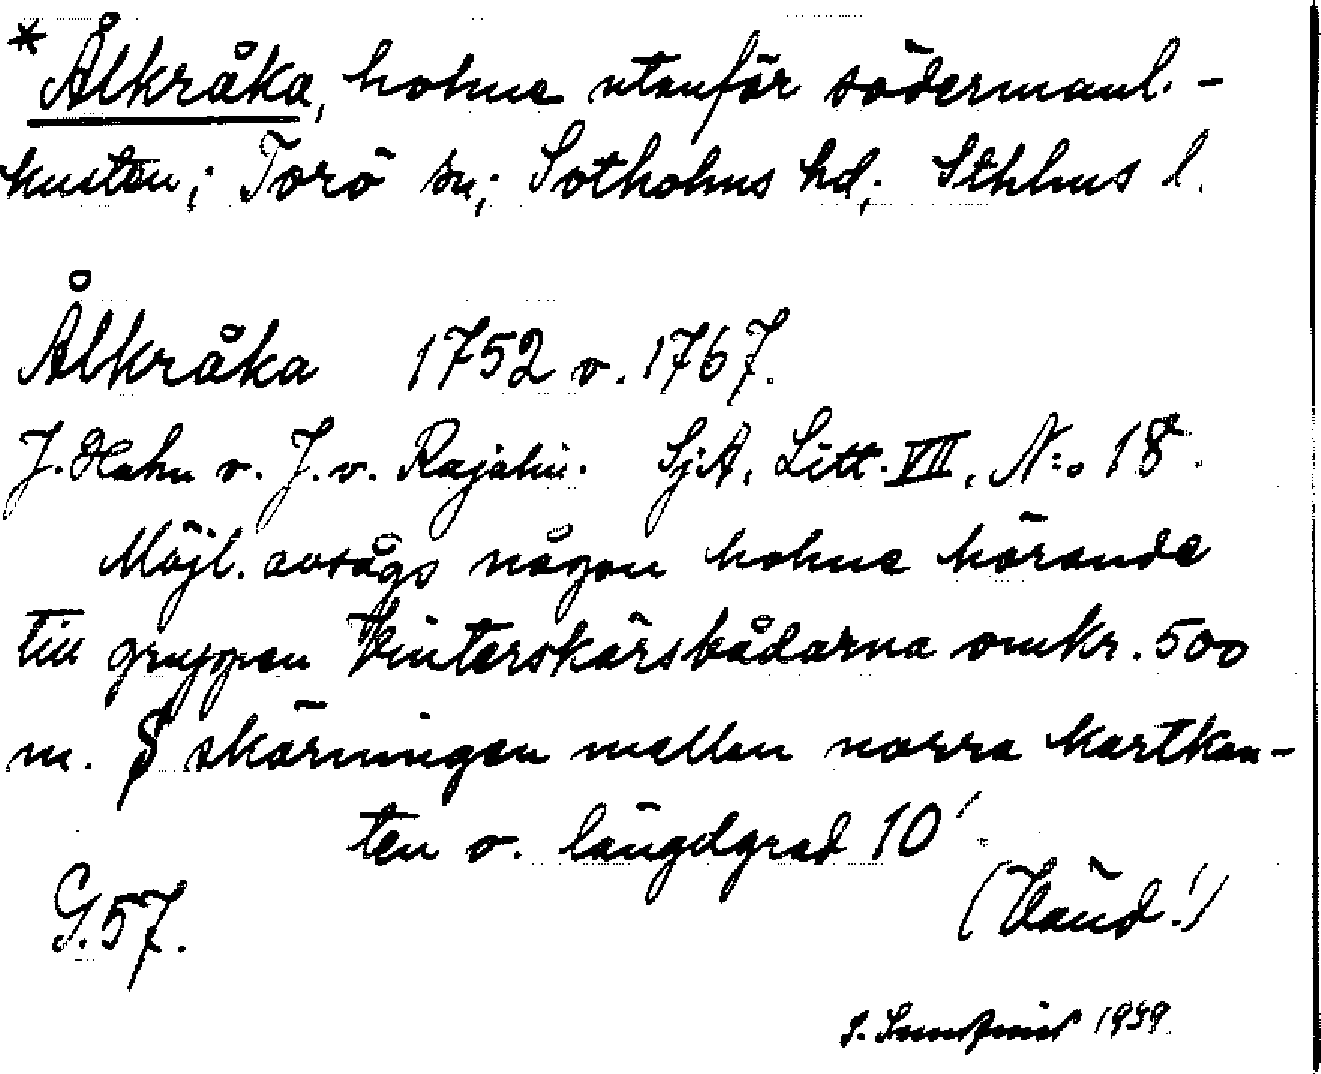 * Ålkråka, holme utanför södermanl.-
kusten; Torö sn; Sotholms hd; Sthlms l.
Ålkråka 1752 o. 1767.
J. Hahn o. J. v. Rajalin. SjA, Litt. VII, N:o 18.
Möjl. avsågs någon holme hörande
till gruppen Vinterskärsbådarna omkr. 500
m. S skärningen mellan norra kartkan-
ten o. längdgrad 10'.
G. 57. (Vänd!)
S. Sundqvist 1939